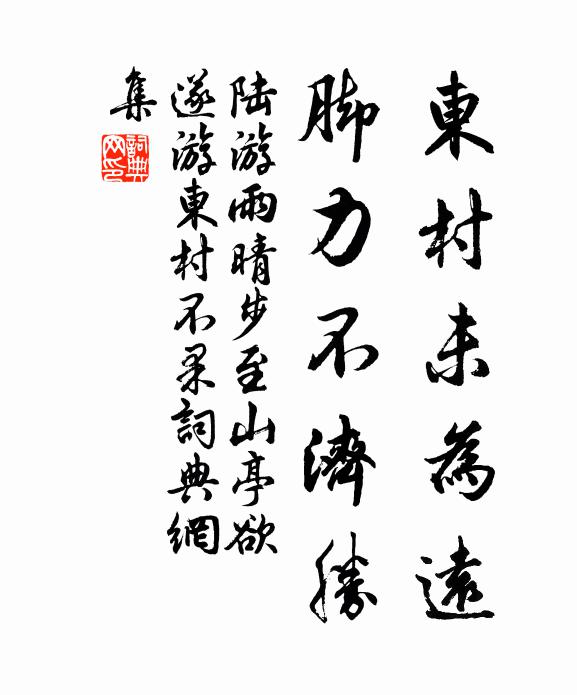 東村未為遠
脚力不濟勝
陆游雨晴步至山亭欲
遂游東村不果詞典網
集
詞典网印